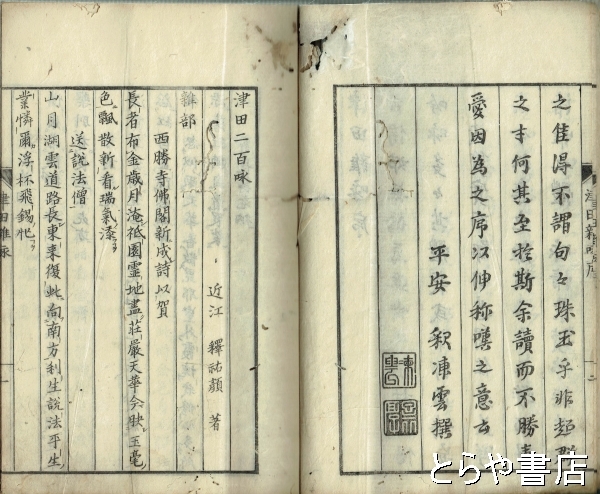 之佳得不謂句々珠玉乎非超群
之才何其至於斯余讀而不勝喜
愛因為之序以伸稱嘆之意云
平安 釈凍雲撰
津田二百咏
近江 釋祐顔 著
雜部
西勝寺佛閣新成詩以賀
長者布金歳月淹祗園靈地盡莊嚴天華今映玉毫
色飄散新看瑞氣添
送説法僧
山月湖雲道路長東来復此向南方利生説法平生
業憐爾浮杯飛錫忙
津田雜咏
とらや書店